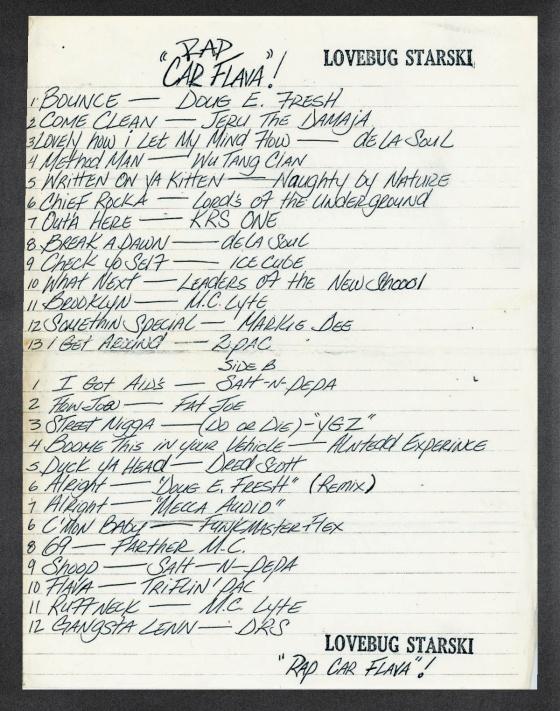 "RAP
CAR FLAVA"!
LOVEBUG STARSKI
1 BOUNCE — DOUG E. FRESH
2 COME CLEAN — JERU THE DAMAJA
3 LOVELY how i LET MY MIND FLOW — de LA SOUL
4 Method MAN — WU TANG CLAN
5 WRITTEN ON YA KITTEN — NAUGHTY by NATURE
6 CHIEF ROCKA — LORD'S of the UNDERGROUND
7 OUTA HERE — KRS ONE
8 BREAK A DAWN — de LA SOUL
9 CHECK YO SELF — ICE CUBE
10 WHAT NEXT — LEADERS OF the NEW SHOOOL
11 BROOKLYN — M.C. LYTE
12 SOMETHIN SPECIAL — MARKIE DEE
13 I GET AROUND — 2PAC
SIDE B
1 I GOT AIDS — SALT-N-PEPA
2 FLOW JOE — FAT JOE
3 STREET NIGGA — (DO OR DIE) - "YGZ"
4 BOOME THIS iN YOUR VEHICLE — ALNTEDD EXPERINCE
5 DUCK YA HEAD — DRED SCOTT
6 ALRIGHT — "DOUG E. FRESH" (REMIX)
7 ALRIGHT — "MECCA AUDIO"
6 C'MON BABY — FUNKMASTER FLEX
8 69 — FATHER M.C.
9 SHOOP — SALT-N-PEPA
10 FLAVA — TRIFLIN' PAC
11 RUFFNECK — M.C. LYTE
12 GANGSTA LENN — DRS
LOVEBUG STARSKI
"RAP CAR FLAVA"!